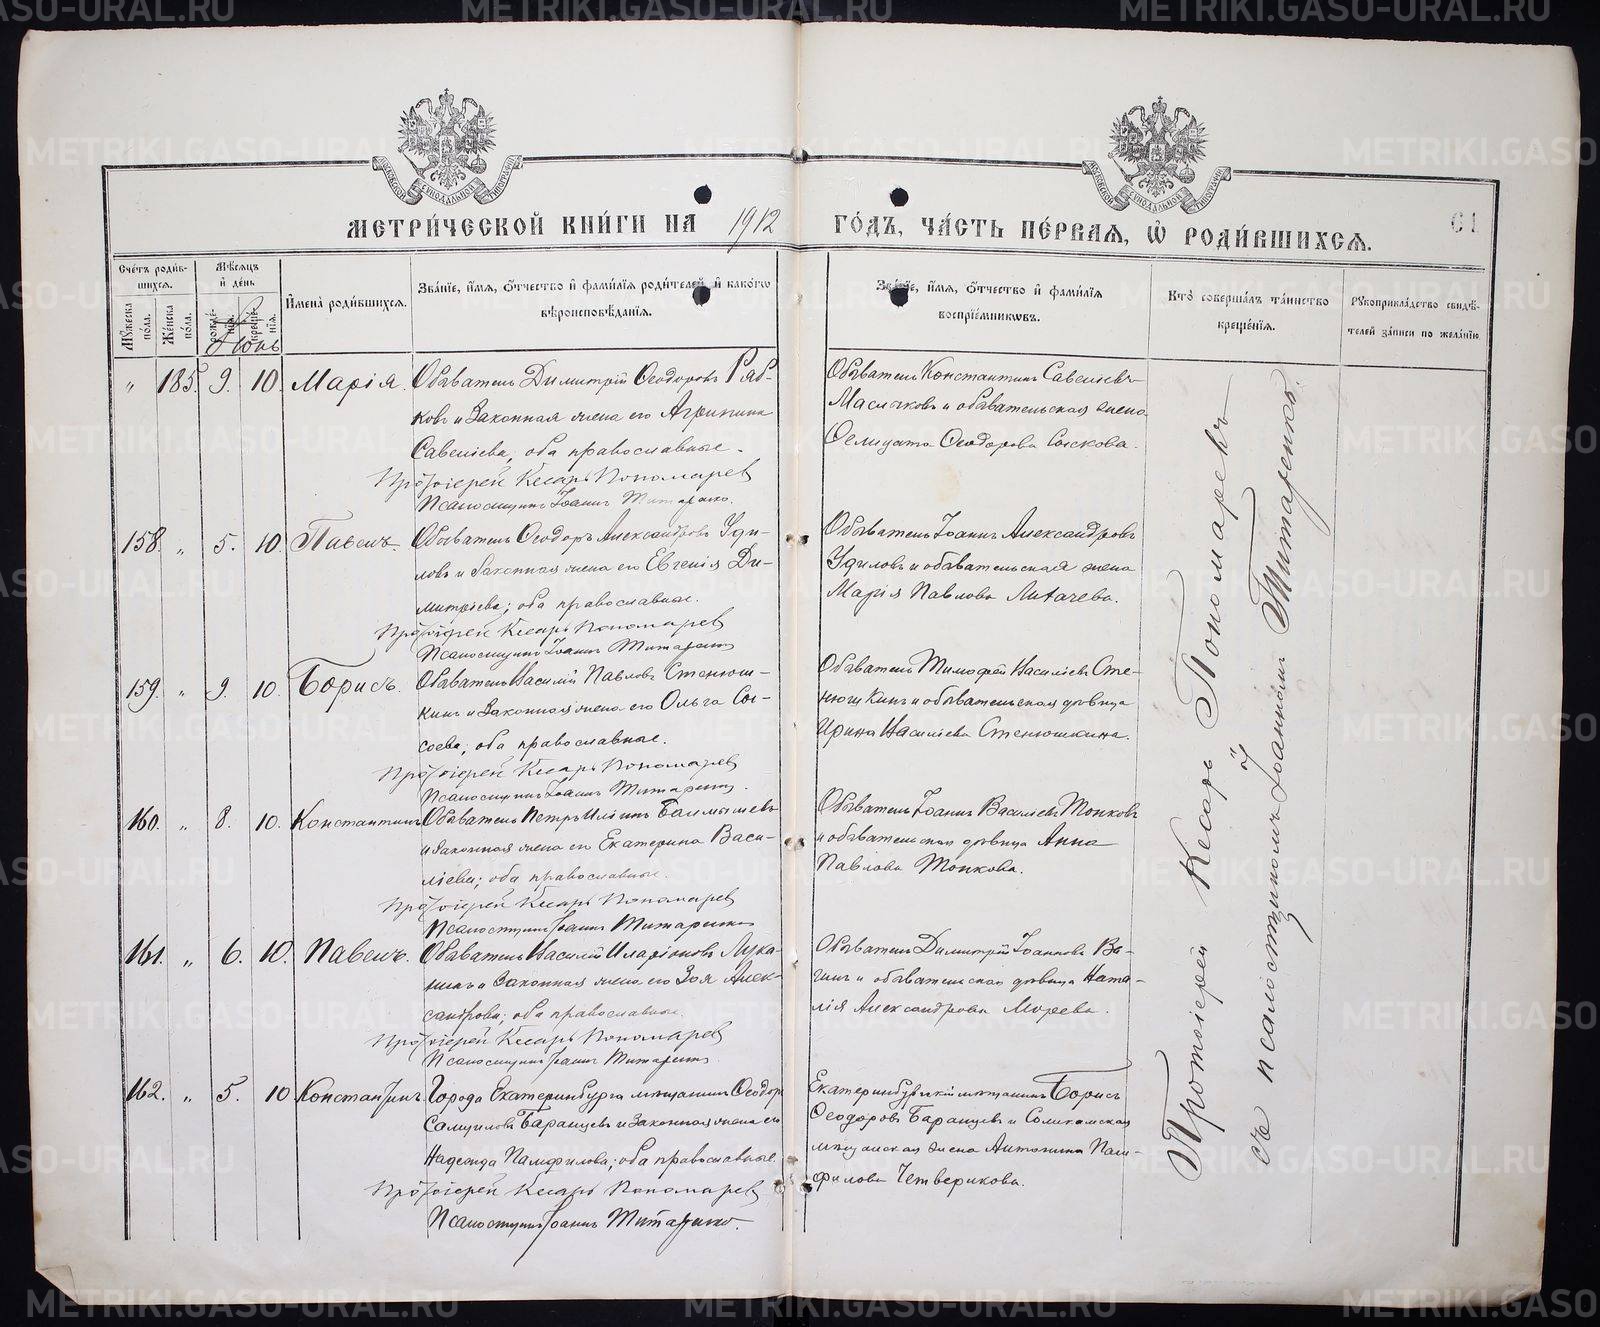 МЕТРИ́ЧЕСКОЙ КНИ́ГИ НА 1912 ГО́ДЪ, ЧА́СТЬ ПЕ́РВАЯ, Ѡ РОДИ́ВШИХСЯ.
61
Сче́тъ роди́вшихся.
Му́жеска по́ла.
Же́нска по́ла.
Мѣ́сяцъ и де́нь
рожде́нія.
креще́нія.
Имена̀ роди́вшихся.
Зва́ніе, и́мя, о́тчество и фами́лія роди́телей, и како́го
вѣроисповѣ́данія.
Зва́ніе, и́мя, о́тчество и фами́лія
воспріе́мниковъ.
Кто̀ соверша́лъ та́инство
креще́нія.
Рукоприкла́дство свидѣ́-
телей за́писи по жела́нію.
Іюнь
„ 185. 9. 10. Марія. Обыватель Димитрій Ѳеодоровъ Ряб-
ковъ и законная жена его Агрипина
Савеліева, оба православные.
Протоіерей Кесарь Пономарев
Псаломщикъ Іоаннъ Титаренко.
Обыватель Константинъ Савеліевъ
и обывательская жена
Ѳеодорова
158. „ 5. 10. Павелъ. Обыватель Ѳеодоръ Александровъ Уди-
ловъ и законная жена его Евгенія Ди-
митріева; оба православные.
Протоіерей Кесарь Пономарев
Псаломщикъ Іоаннъ Титаренко
Обыватель Іоаннъ Александровъ
Удиловъ и обывательская жена
Марія Павлова
159. „ 9. 10. Борисъ. Обыватель Василій Павловъ Стенюш-
кинъ и законная жена его Ольга Сы-
соева, оба православные.
Протоіерей Кесарь Пономарев
Псаломщикъ Іоаннъ Титаренко
Обыватель Тимофей Васильевъ Сте-
нюшкинъ и обывательская дѣвица
Ирина Васильева Стенюшкина.
160. „ 8. 10. Константинъ Обыватель Петръ Ильинъ
и законная жена его Екатерина Васи-
ліева; оба православные.
Протоіерей Кесарь Пономарев
Псаломщикъ Іоаннъ Титаренко
Обыватель Іоаннъ Васильевъ Топковъ
и обывательская дѣвица Анна
Павлова Топкова.
161. „ 6. 10. Павелъ. Обыватель Василій Иларіоновъ Лука-
нинъ и законная жена его Зоя Алек-
сандрова; оба православные.
Протоіерей Кесарь Пономарев
Псаломщикъ Іоаннъ Титаренко
Обыватель Димитрій Іоанновъ Ва-
гинъ и обывательская дѣвица Ната-
лія Александрова Морева.
162. „ 5. 10 Константинъ. Города Екатеринбурга мѣщанинъ Ѳеодоръ
Самуиловъ Баранцевъ и законная жена его
Надежда Памфилова; оба православные.
Протоіерей Кесарь Пономарев
Псаломщикъ Іоаннъ Титаренко.
Екатеринбургскій мѣщанинъ Борисъ
Ѳеодоровъ Баранцевъ и Соликамская
мѣщанская жена Антонина Пам-
филова Четверикова.
Протоіерей Кесарь Пономаревъ
съ псаломщикомъ Іоанномъ Титаренко.
METRIKI.GASO-URAL.RU